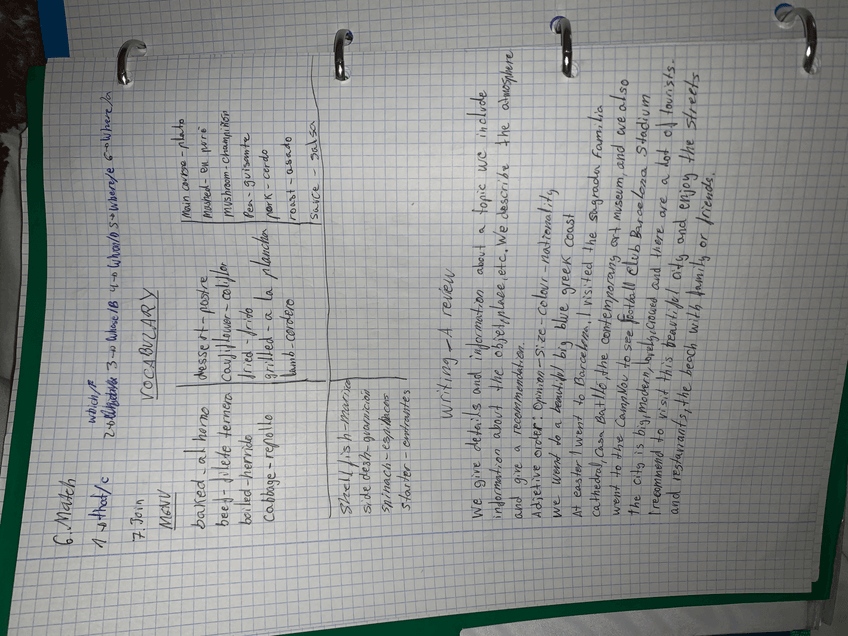 6. Match
1→that/c 2→which/F 3→Whose/B 4→Whom/D 5→where/e 6→Where/a
7. Join
VOCABULARY
MENU
baked - al horno
beef - filete ternera
boiled - hervido
Cabbage - repollo
dessert - postre
cauliflower - coliflor
fried - frito
grilled - a la plancha
lamb - cordero
main course - plato
mashed - en puré
mushroom - champiñón
Pea - guisante
pork - cerdo
roast - asado
sauce - salsa
Shellfish - marisco
side desh - guarnición
spinach - espinacas
starter - entrantes
Writing - A review
We give details and information about a topic we include
information about the objet, place, etc. We describe the atmosphere
and give a recommendation.
Adjetive order: Opinion - size - colour - nationality
We went to a beautiful big blue greek coast
At easter I went to Barcelona. I visited the Sagrada Familia
cathedral, Casa Batllo, the contemporany art museum, and we also
went to the CampNou to see Football Club Barcelona Stadium
the city is big, modern, lovely, crowed and there are a lot of tourists.
I recommend to visit this beautiful city and enjoy the streets
and restaurants, the beach with family or friends.